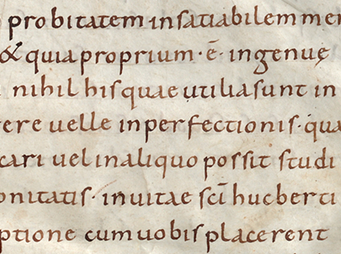 probitatem insatiabilem mei
& quia proprium · ē · ingenuę
nihil his quae utilia sunt in
ere uelle inperfectionis · qua
cari uel in aliquo possit studi
onitatis · in uitae sc̄i hucberti
ptione cum uobis placerent